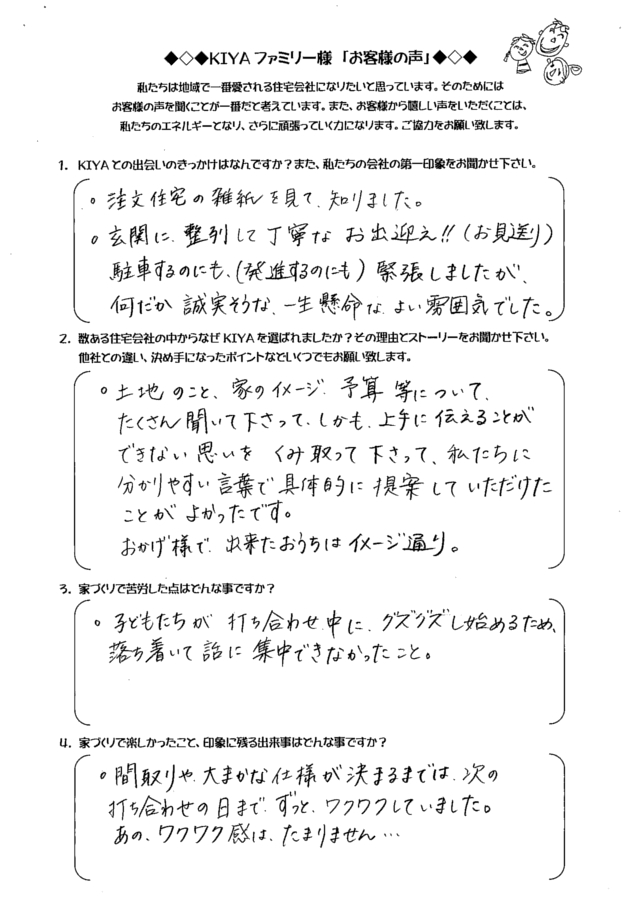 ◆◇◆KIYAファミリー様「お客様の声」◆◇◆
私たちは地域で一番愛される住宅会社になりたいと思っています。そのためには
お客様の声を聞くことが一番だと考えています。また、お客様から嬉しい声をいただくことは、
私たちのエネルギーとなり、さらに頑張っていく力になります。ご協力をお願い致します。
1. KIYAとの出会いのきっかけはなんですか？また、私たちの会社の第一印象をお聞かせ下さい。
○ 注文住宅の雑紙を見て、知りました。
○ 玄関に、整列して丁寧な お出迎え!!（お見送り）
駐車するのにも、（発進するのにも）緊張しましたが、
何だか 誠実そうな、一生懸命な、よい雰囲気でした。
2. 数ある住宅会社の中からなぜKIYAを選ばれましたか？その理由とストーリーをお聞かせ下さい。
他社との違い、決め手になったポイントなどいくつでもお願い致します。
○ 土地 のこと、家のイメージ、予算 等について、
たくさん聞いて下さって、しかも、上手に 伝えることが
できない 思いを くみ取って 下さって、私たちに
分かりやすい 言葉で 具体的に 提案 していただけた
ことが よかったです。
おかげ様で、出来たおうちは イメージ通り。
3. 家づくりで苦労した点はどんな事ですか？
○ 子どもたちが 打ち合わせ中に、グズグズし始めるため、
落ち着いて 話に 集中できなかったこと。
4. 家づくりで楽しかったこと、印象に残る出来事はどんな事ですか？
○ 間取りや、大まかな仕様が 決まるまでは、次の
打ち合わせの日まで、ずっと、ワクワクしていました。
あの、ワクワク感は、たまりません…